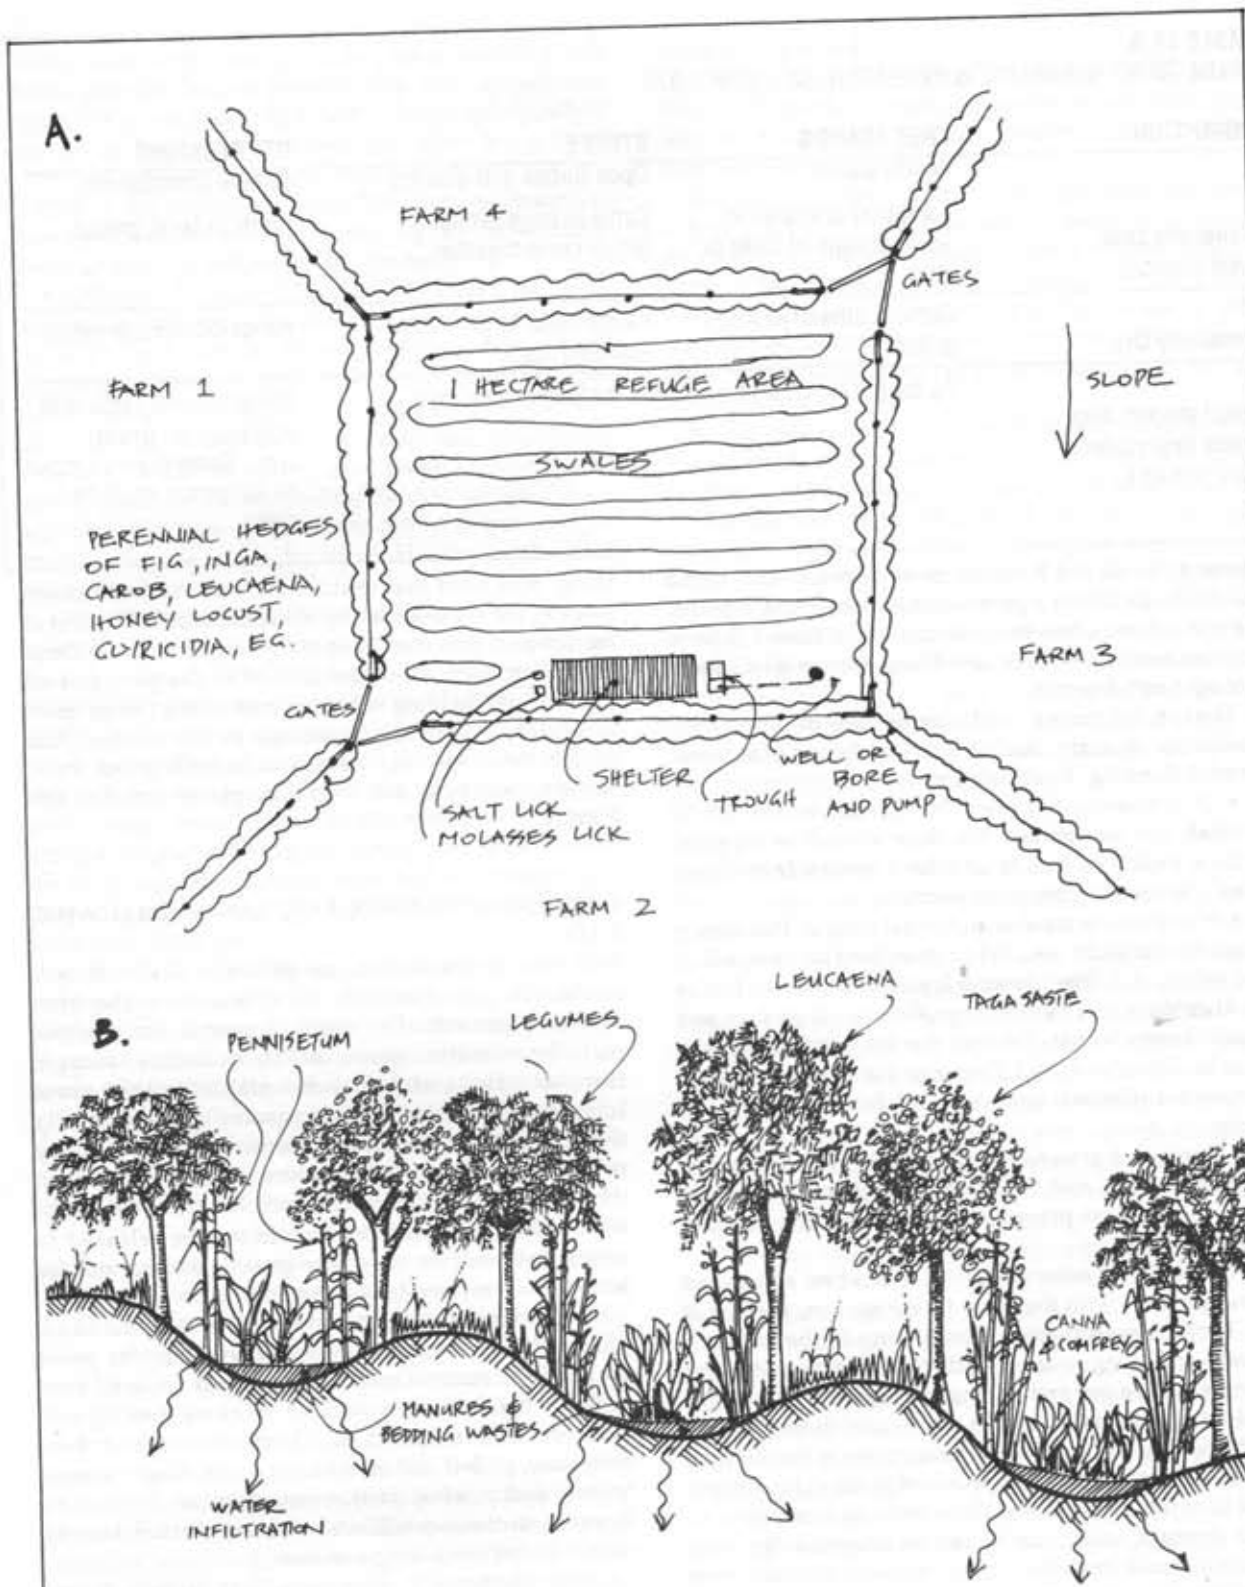 A.
FARM 4
GATES
FARM 1
1 HECTARE REFUGE AREA
SLOPE
SWALES
PERENNIAL HEDGES
OF FIG, INGA,
CAROB, LEUCAENA,
HONEY LOCUST,
EG.
FARM 3
GATES
SHELTER
TROUGH
WELL OR
BORE
AND PUMP
SALT LICK
MOLASSES LICK
FARM 2
B.
PENNISETUM
LEGUMES
LEUCAENA
TAGASASTE
CANNA
& COMFREY
MANURES &
BEDDING WASTES
WATER
INFILTRATION